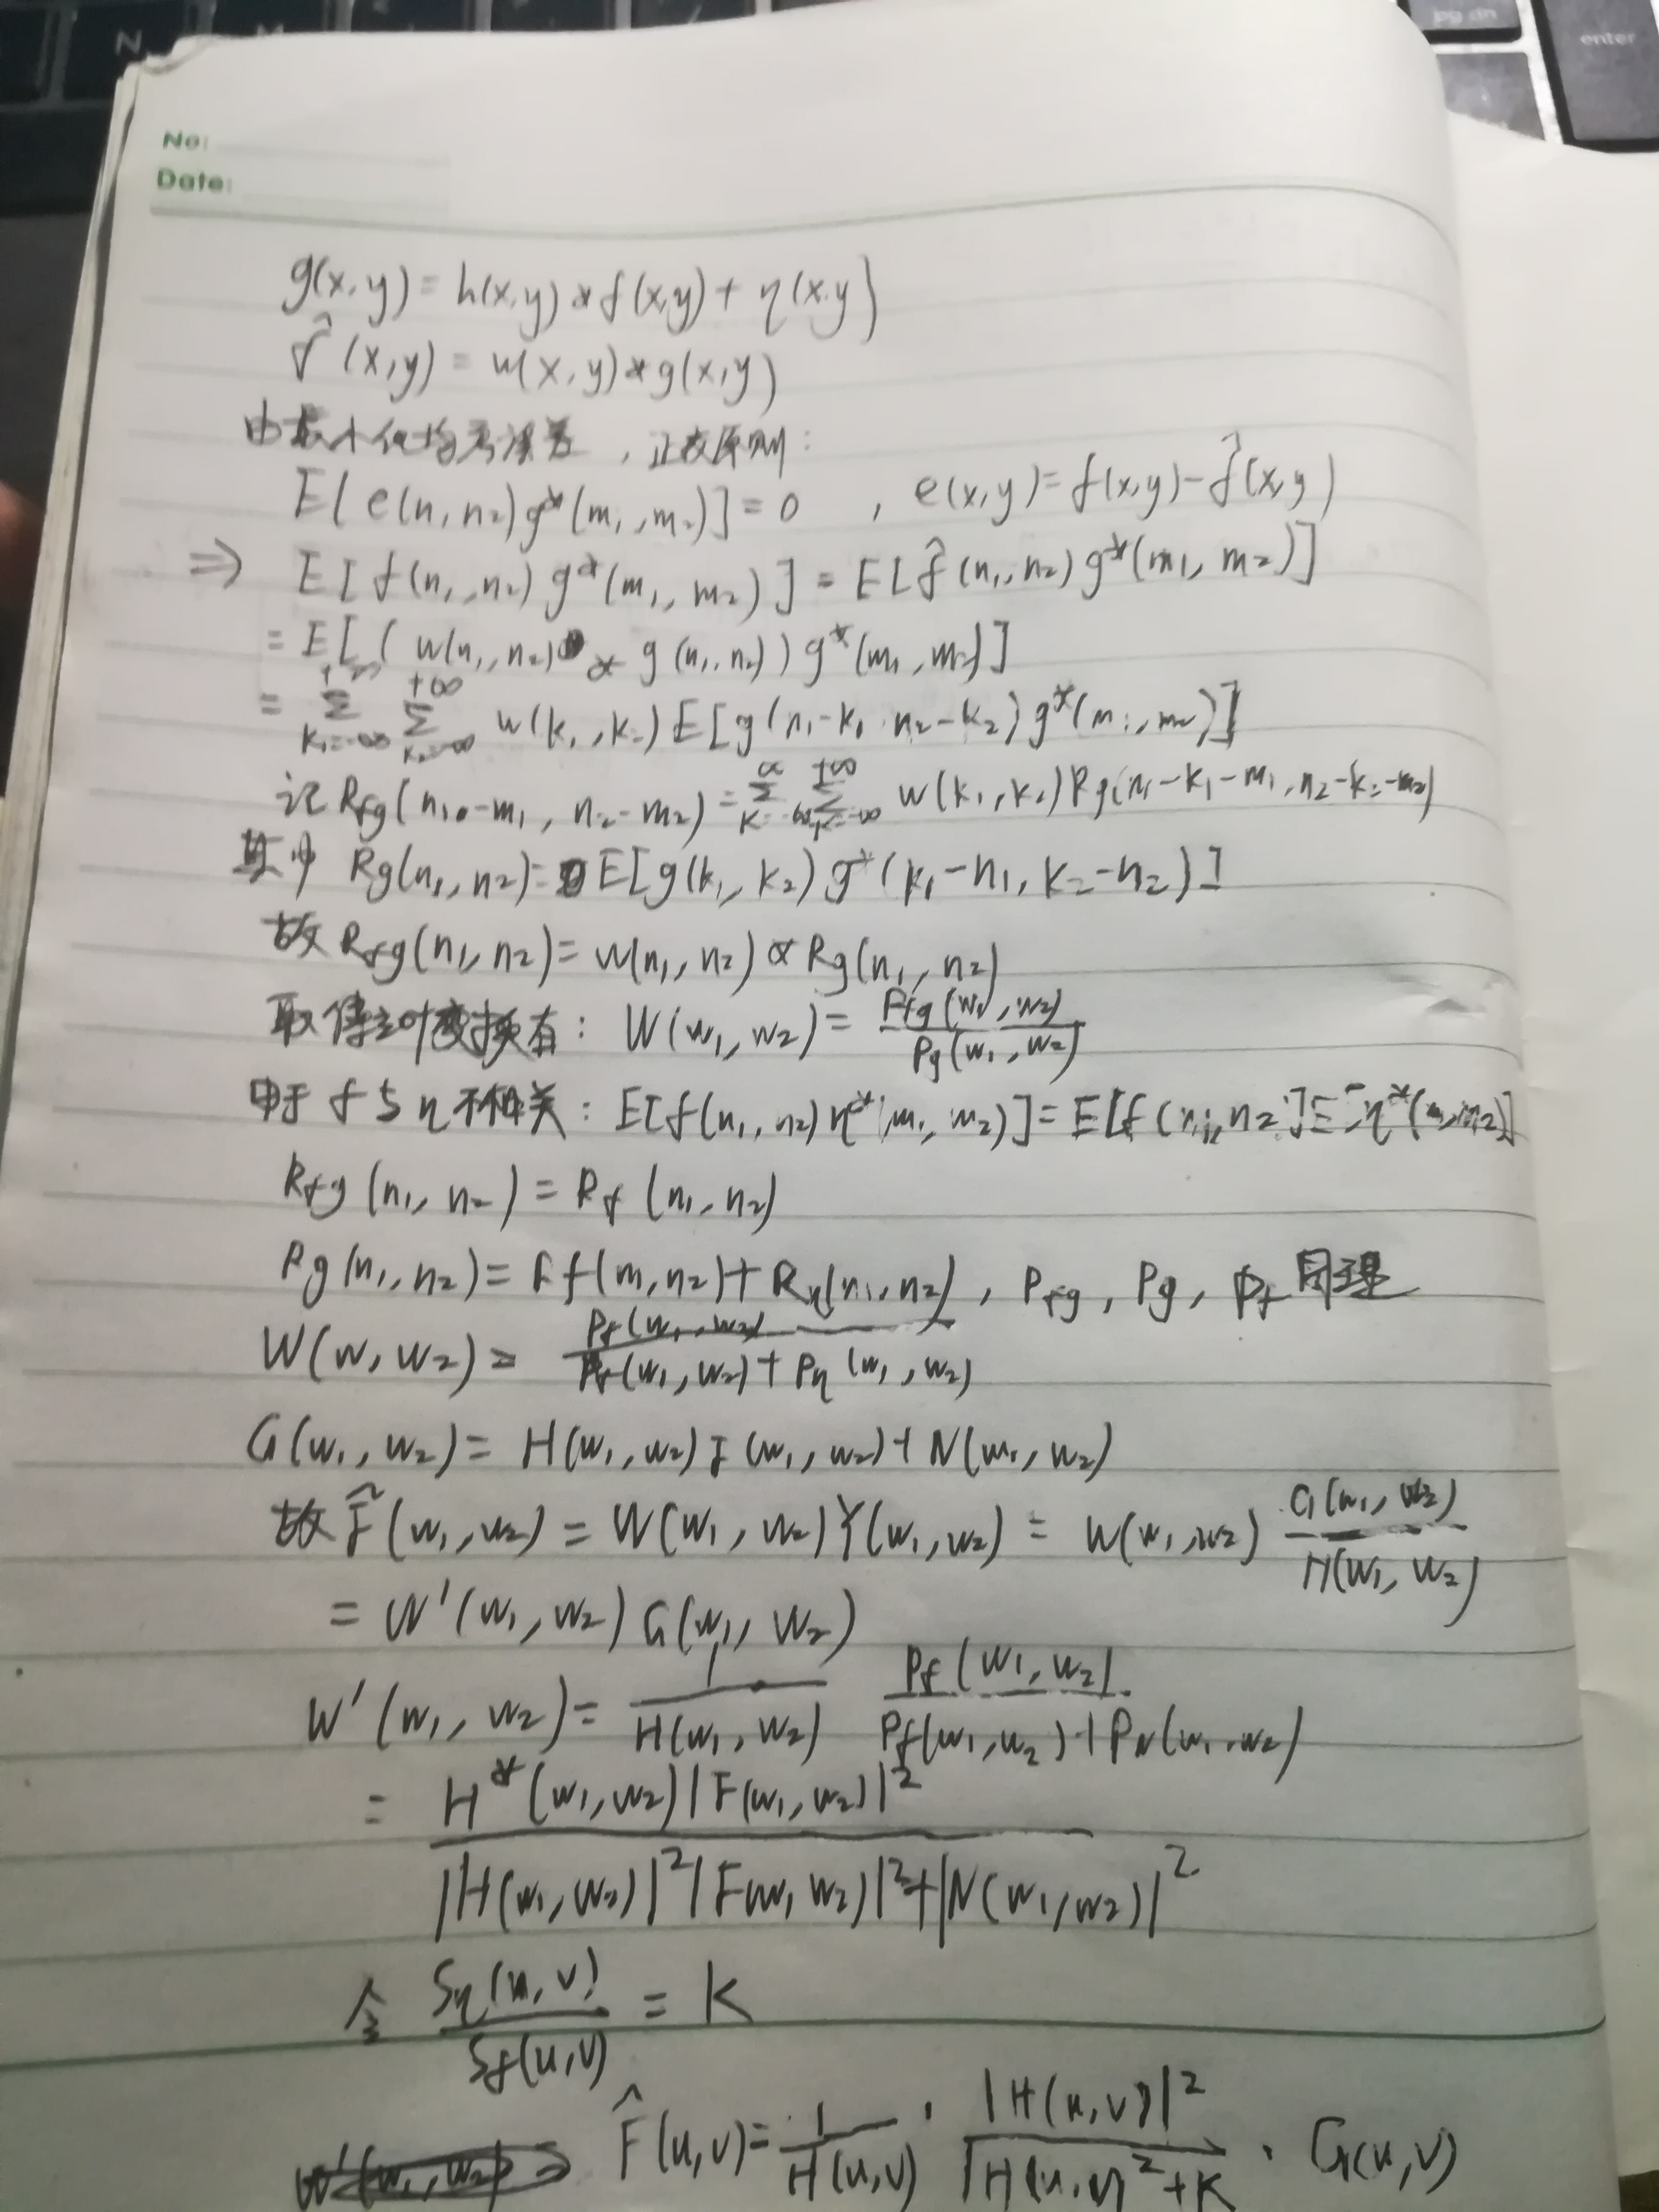 No:
Date:
g(x,y) = h(x,y) * f(x,y) + η(x,y)
f̂(x,y) = w(x,y) * g(x,y)
由最小化均方误差，正交原则:
E[e(n, n₂)g*(m₁,m₂)] = 0 , e(x,y) = f(x,y) - f̂(x,y)
⇒ E[f(n₁,n₂)g*(m₁,m₂)] = E[f̂(n₁,n₂)g*(m₁,m₂)]
= E[(w(n₁,n₂) * g(n₁,n₂))g*(m₁,m₂)]
= Σ_{k₁=-∞}^{+∞} Σ_{k₂=-∞}^{+∞} w(k₁,k₂)E[g(n₁-k₁, n₂-k₂)g*(m₁,m₂)]
记 Rfg(n₁-m₁, n₂-m₂) = Σ_{k=-∞}^{∞} Σ_{k=-∞}^{+∞} w(k₁,k₂)Rg(n₁-k₁-m₁, n₂-k₂-m₂)
其中 Rg(n₁,n₂) = E[g(k₁,k₂)g*(k₁-n₁, k₂-n₂)]
故 Rfg(n₁,n₂) = w(n₁,n₂) * Rg(n₁,n₂)
取傅立叶变换有: W(w₁,w₂) = Pfg(w₁,w₂) / Pg(w₁,w₂)
由于 f 与 η 不相关: E[f(n₁,n₂)η*(m₁,m₂)] = E[f(n₁,n₂)]E[η*(m₁,m₂)]
Rfg(n₁,n₂) = Rf(n₁,n₂)
Rg(n₁,n₂) = Rf(n₁,n₂) + Rη(n₁,n₂), Pfg, Pg, Pf 同理
W(w,w₂) = Pf(w₁,w₂) / Pf(w₁,w₂) + Pη(w₁,w₂)
G(w₁,w₂) = H(w₁,w₂)F(w₁,w₂) + N(w₁,w₂)
故 F̂(w₁,w₂) = W(w₁,w₂)Y(w₁,w₂) = W(w₁,w₂) G(w₁,w₂) / H(w₁,w₂)
= W'(w₁,w₂)G(w₁,w₂)
W'(w₁,w₂) = 1 / H(w₁,w₂) Pf(w₁,w₂) / Pf(w₁,w₂) + PN(w₁,w₂)
= H*(w₁,w₂)|F(w₁,w₂)|² / |H(w₁,w₂)|²|F(w₁,w₂)|² + |N(w₁,w₂)|²
令 Sη(u,v) / Sf(u,v) = K
F̂(u,v) = 1 / H(u,v) · |H(u,v)|² / |H(u,v)|² + K · G(u,v)
N
pg dn
enter